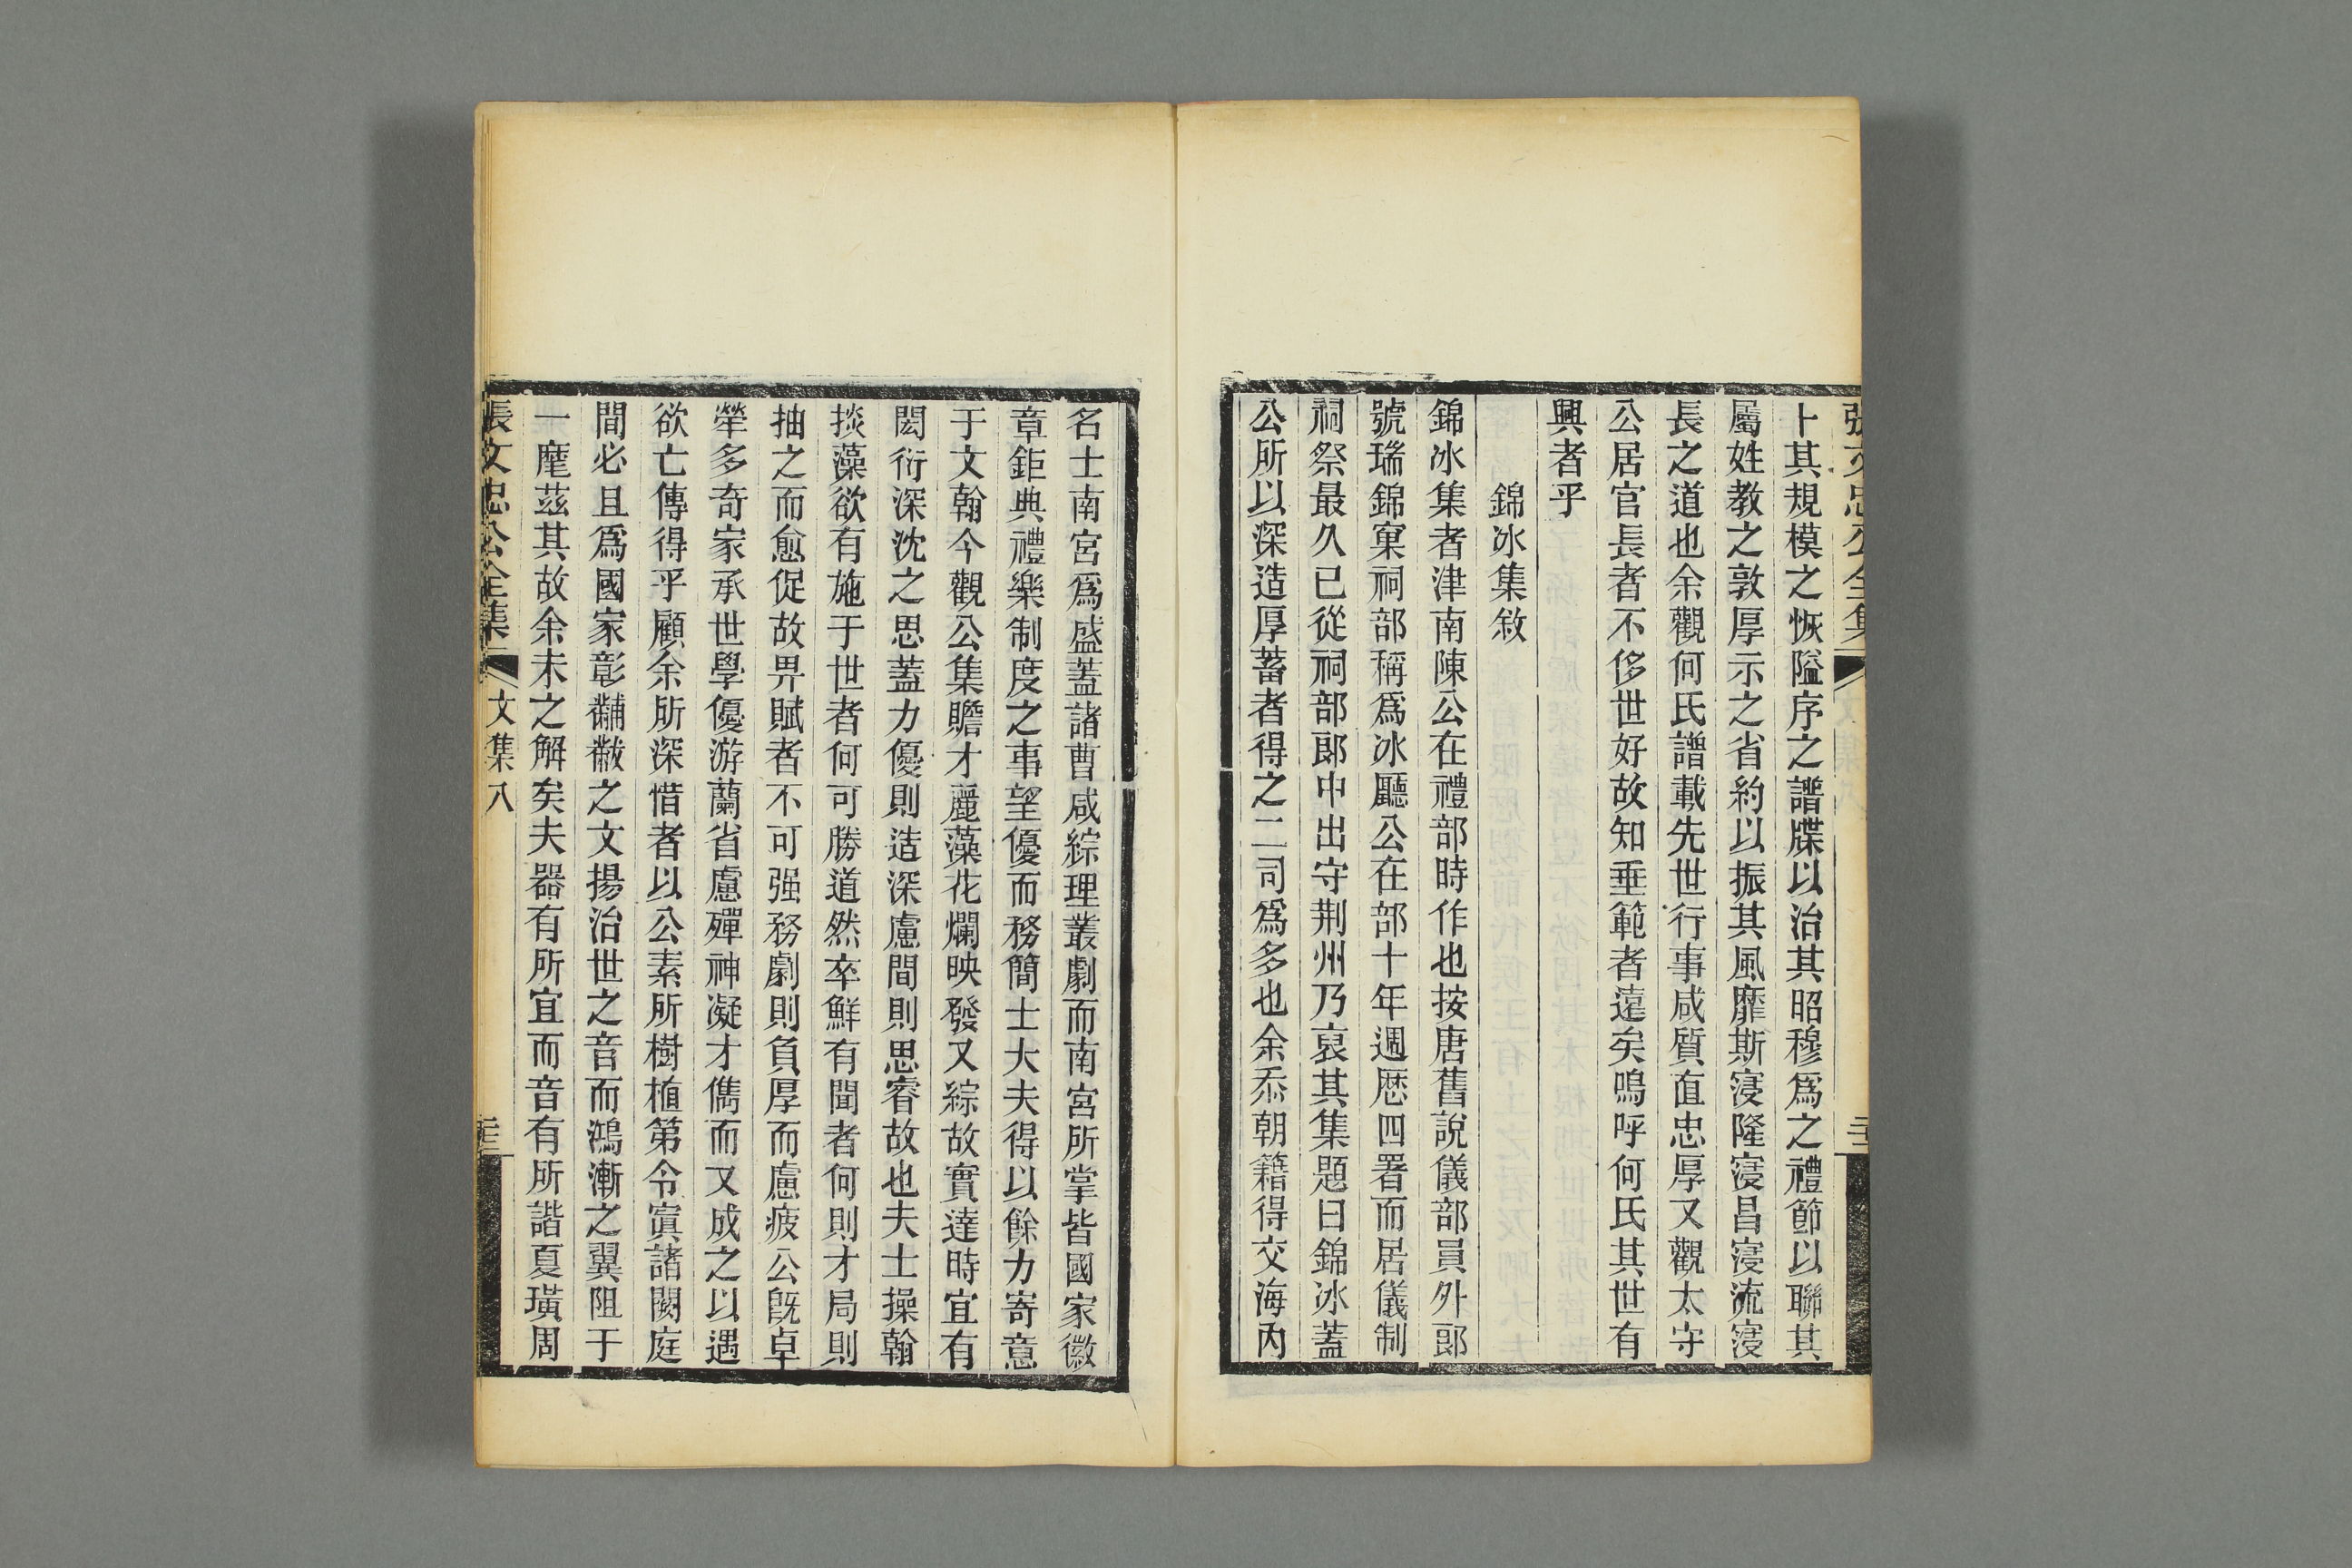 張文忠公全集
卜其規模之恢隘序之譜牒以治其昭穆爲之禮節以聯其
屬姓教之敦厚示之省約以振其風靡斯寖隆寖昌寖流寖
長之道也余觀何氏譜載先世行事咸質直忠厚又觀太守
公居官長者不侈世好故知垂範者遠矣嗚呼何氏其世有
興者乎
錦冰集敘
錦冰集者津南陳公在禮部時作也按唐舊說儀部員外郎
號瑞錦窠祠部稱爲冰廳公在部十年週歷四署而居儀制
祠祭最久已從祠部郎中出守荆州乃裒其集題曰錦冰蓋
公所以深造厚蓄者得之二司爲多也余忝朝籍得交海內
名士南宮爲盛蓋諸曹咸綜理叢劇而南宮所掌皆國家徽
章鉅典禮樂制度之事望優而務簡士大夫得以餘力寄意
于文翰今觀公集贍才麗藻花爛映發又綜故實達時宜有
閎衍深沈之思蓋力優則造深慮間則思睿故也夫士操翰
掞藻欲有施于世者何可勝道然卒鮮有聞者何則才局則
抽之而愈促故畀賦者不可强務劇則負厚而慮疲公旣卓
犖多奇家承世學優游蘭省慮殫神凝才儁而又成之以遇
欲亡傳得乎顧余所深惜者以公素所樹植第令寘諸闕庭
間必且爲國家彰黼黻之文揚治世之音而鴻漸之翼阻于
一麾茲其故余未之解矣夫器有所宜而音有所諧夏璜周
張文忠公全集
文集八